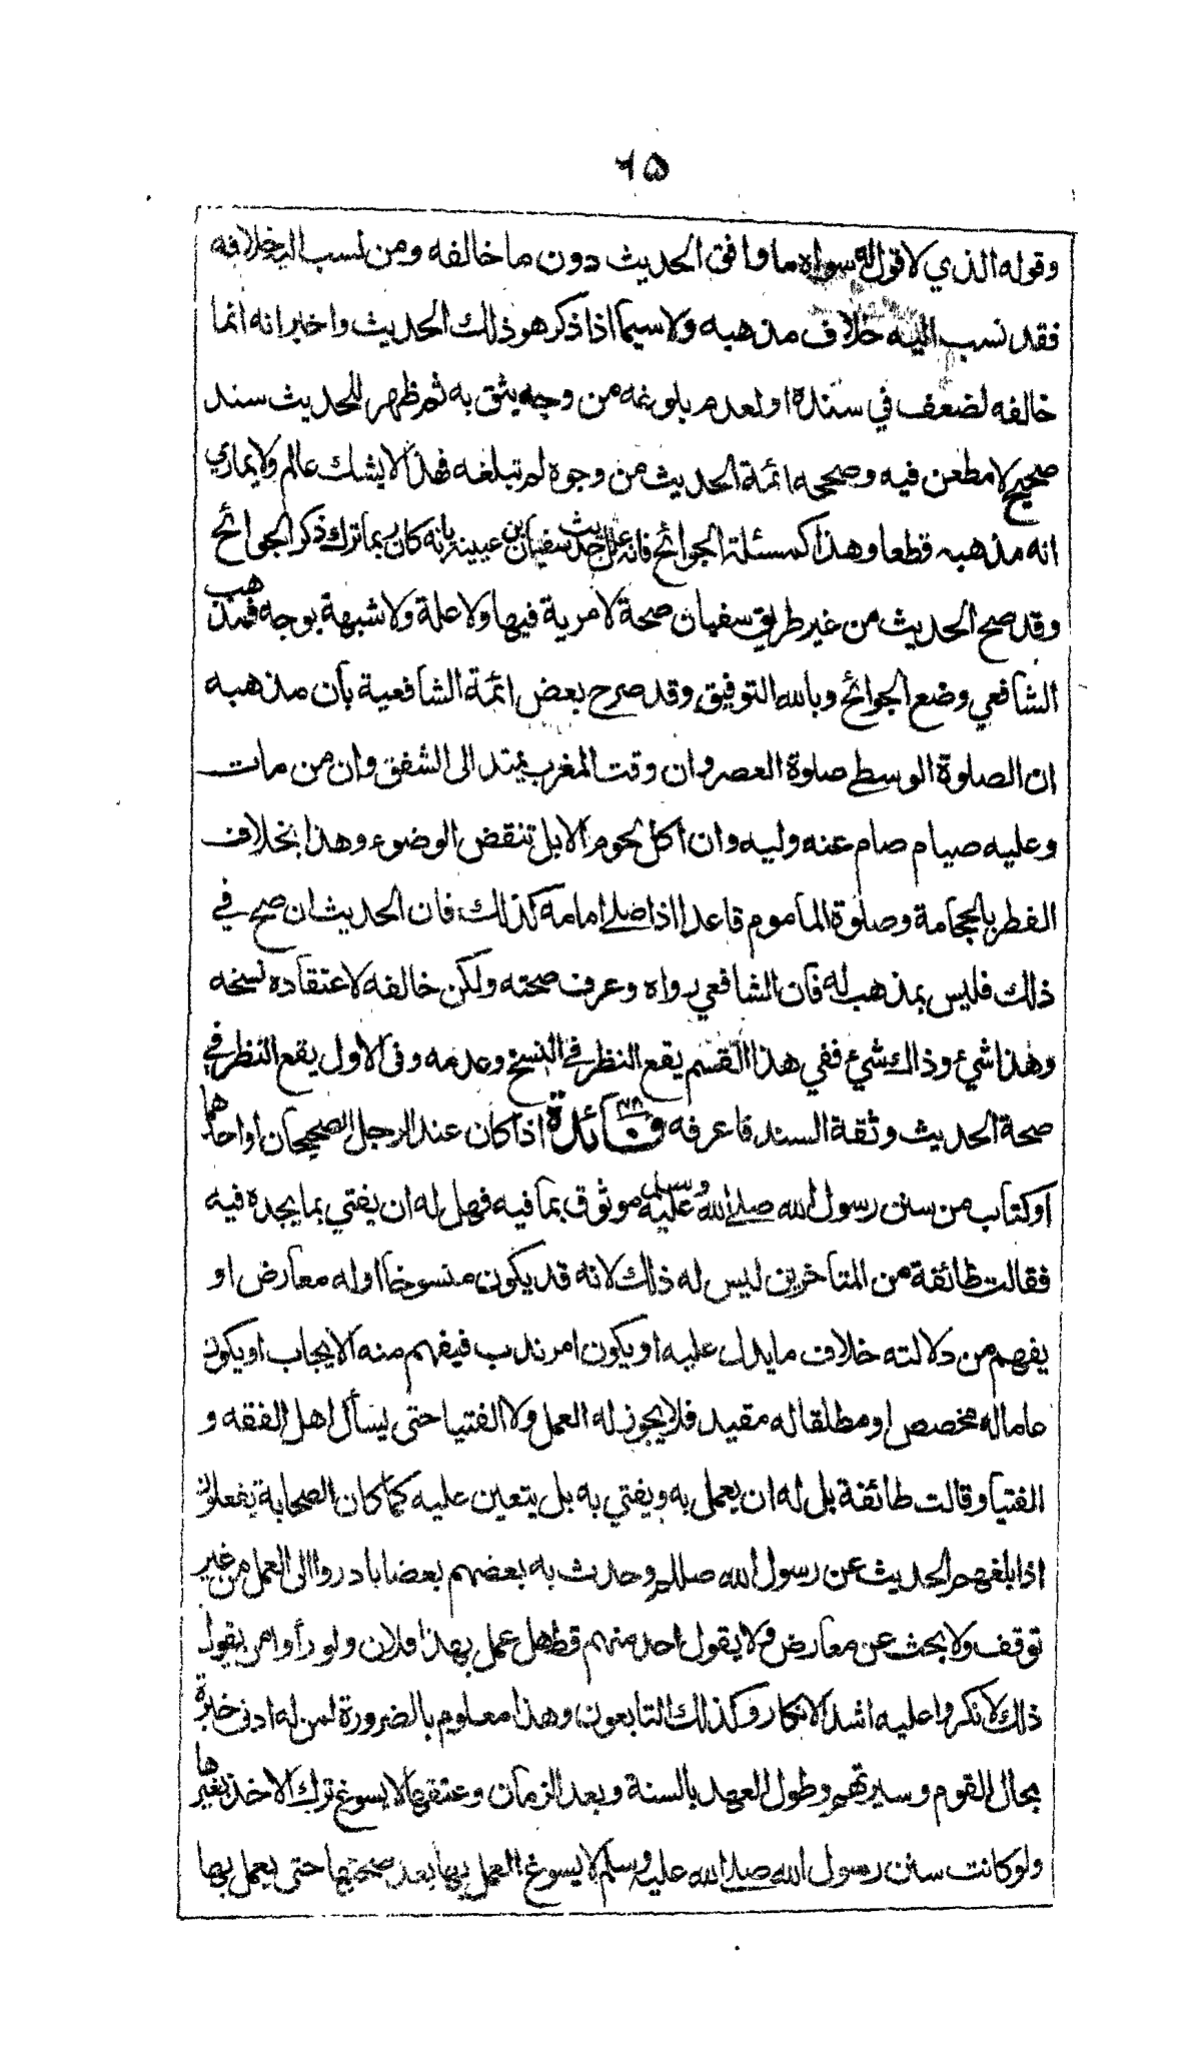 ٦۵
وقوله الذي لا قول له سواه ما وافق الحديث دون ما خالفه ومن نسب اليه خلافه
فقد نسب اليه خلاف مذهبه ولا سيما اذا ذكر هو ذلك الحديث واخبر انه انما
خالفه لضعف في سنده او لعدم بلوغه من وجه يثق به ثم ظهر للحديث سند
صحيح لا مطعن فيه وصححه ائمة الحديث من وجوه لم تبلغه فهذا لا يشك عالم ولا يماري
انه مذهبه قطعا وهذا كمسئلة الجوائح فانه علل حديث سفيان بن عيينة بانه كان ربما ترك ذكر الجوائح
وقد صح الحديث من غير طريق سفيان صحة لا مرية فيها ولا علة ولا شبهة بوجه فمذهب
الشافعي وضع الجوائح وبالله التوفيق وقد صرح بعض ائمة الشافعية بان مذهبه
ان الصلوة الوسطى صلوة العصر وان وقت المغرب يمتد الى الشفق وان من مات
وعليه صيام صام عنه وليه وان اكل لحوم الابل تنقض الوضوء وهذا بخلاف
الفطر بالحجامة وصلوة الماموم قاعدا اذا صلى امامه كذلك فان الحديث ان صح في
ذلك فليس بمذهب له فان الشافعي رواه وعرف صحته ولكن خالفه لاعتقاده نسخه
وهذا شيء وذاك شيء ففي هذا القسم يقع النظر في النسخ وعدمه وفي الاول يقع النظر في
صحة الحديث وثقة السند فاعرفه فائدة ٤٨ اذا كان عند الرجل الصحيحان او احدهما
او كتاب من سنن رسول الله صلى الله عليه وسلم موثوق بما فيه فهل له ان يفتي بما يجده فيه
فقالت طائفة من المتاخرين ليس له ذلك لانه قد يكون منسوخا او له معارض او
يفهم من دلالته خلاف ما يدل عليه او يكون امر ندب فيفهم منه الايجاب او يكون
عاما له مخصص او مطلقا له مقيد فلا يجوز له العمل ولا الفتيا حتى يسأل اهل الفقه و
الفتيا وقالت طائفة بل له ان يعمل به ويفتي به بل يتعين عليه كما كان الصحابة يفعلون
اذا بلغهم الحديث عن رسول الله صللم وحدث به بعضهم بعضا بادروا الى العمل من غير
توقف ولا بحث عن معارض ولا يقول احد منهم قط هل عمل بهذا فلان ولو رأوا من يقول
ذلك لانكروا عليه اشد الانكار وكذلك التابعون وهذا معلوم بالضرورة لمن له ادنى خبرة
بحال القوم وسيرتهم وطول العهد بالسنة وبعد الزمان وعتقها لا يسوغ ترك الاخذ بغيرها
ولو كانت سنن رسول الله صلى الله عليه وسلم لا يسوغ العمل بها بعد صحتها حتى يعمل بها